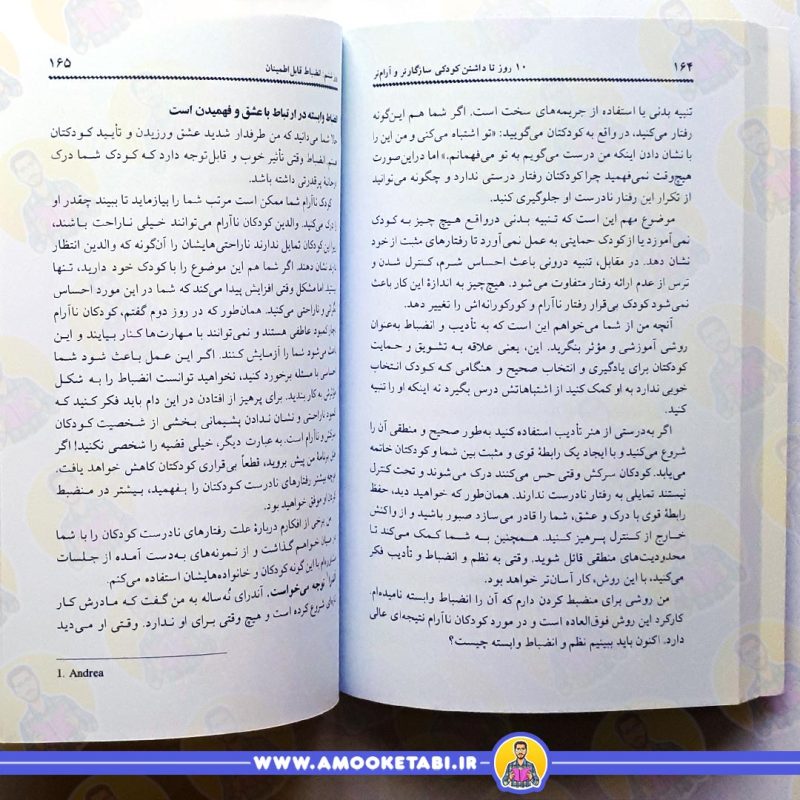 ۱۶۴
۱۰ روز تا داشتن کودکی سازگارتر و آرام‌تر
تنبیه بدنی یا استفاده از جریمه‌های سخت است. اگر شما هم این‌گونه
رفتار می‌کنید، در واقع به کودکتان می‌گویید: «تو اشتباه می‌کنی و من این را
با نشان دادن اینکه من درست می‌گویم به تو می‌فهمانم.» اما دراین‌صورت
هیچ‌وقت نمی‌فهمید چرا کودکتان رفتار درستی ندارد و چگونه می‌توانید
از تکرار این رفتار نادرست او جلوگیری کنید.
موضوع مهم این است که تنبیه بدنی درواقع هیچ چیز به کودک
نمی‌آموزد یا از کودک حمایتی به عمل نمی‌آورد تا رفتارهای مثبت از خود
نشان دهد. در مقابل، تنبیه درونی باعث احساس شرم، کنترل شدن و
ترس از عدم ارائه رفتار متفاوت می‌شود. هیچ‌چیز به اندازهٔ این کار باعث
نمی‌شود کودک بی‌قرار رفتار ناآرام و کورکورانه‌اش را تغییر دهد.
آنچه من از شما می‌خواهم این است که به تأدیب و انضباط به‌عنوان
روشی آموزشی و مؤثر بنگرید. این، یعنی علاقه به تشویق و حمایت
کودکتان برای یادگیری و انتخاب صحیح و هنگامی که کودک انتخاب
خوبی ندارد به او کمک کنید از اشتباهاتش درس بگیرد نه اینکه او را تنبیه
کنید.
اگر به‌درستی از هنر تأدیب استفاده کنید به‌طور صحیح و منطقی آن را
شروع می‌کنید و با ایجاد یک رابطهٔ قوی و مثبت بین شما و کودکتان خاتمه
می‌یابد. کودکان سرکش وقتی حس می‌کنند درک می‌شوند و تحت کنترل
نیستند تمایلی به رفتار نادرست ندارند. همان‌طور که خواهید دید، حفظ
رابطهٔ قوی با درک و عشق، شما را قادر می‌سازد صبور باشید و از واکنش
خارج از کنترل پرهیز کنید. همچنین به شما کمک می‌کند تا
محدودیت‌های منطقی قائل شوید. وقتی به نظم و انضباط و تأدیب فکر
می‌کنید، با این روش، کار آسان‌تر خواهد بود.
من روشی برای منضبط کردن دارم که آن را انضباط وابسته نامیده‌ام.
کارکرد این روش فوق‌العاده است و در مورد کودکان ناآرام نتیجه‌ای عالی
دارد. اکنون باید ببینیم نظم و انضباط وابسته چیست؟
انضباط قابل اطمینان
۱۶۵
وابسته در ارتباط با عشق و فهمیدن است
شما می‌دانید که من طرفدار شدید عشق ورزیدن و تأیید کودکتان
هستم. انضباط وقتی تأثیر خوب و قابل‌توجه دارد که کودک شما درک
پرقدرتی داشته باشد.
کودک ناآرام شما ممکن است مرتب شما را بیازماید تا ببیند چقدر او
درک می‌کنید. والدین کودکان ناآرام می‌توانند خیلی ناراحت باشند،
این کودکان تمایل ندارند ناراحتی‌هایشان را آن‌گونه که والدین انتظار
نشان دهند. اگر شما هم این موضوع را با کودک خود دارید، تنها
اما مشکل وقتی افزایش پیدا می‌کند که شما در این مورد احساس
و ناراحتی می‌کنید. همان‌طور که در روز دوم گفتم، کودکان ناآرام
کمبود عاطفی هستند و نمی‌توانند با مهارت‌ها کنار بیایند و این
می‌شود شما را آزمایش کنند. اگر این عمل باعث شود شما
با مسئله برخورد کنید، نخواهید توانست انضباط را به شکل
به کار بندید. برای پرهیز از افتادن در این دام باید فکر کنید که
ناراحتی و نشان ندادن پشیمانی بخشی از شخصیت کودکان
و ناآرام است. به عبارت دیگر، خیلی قضیه را شخصی نکنید! اگر
برنامهٔ من پیش بروید، قطعاً بی‌قراری کودکتان کاهش خواهد یافت.
بیشتر رفتارهای نادرست کودکتان را بفهمید، بیشتر در منضبط
او موفق خواهید بود.
برخی از افکارم دربارهٔ علت رفتارهای نادرست کودکان را با شما
خواهم گذاشت و از نمونه‌های به‌دست آمده از جلسات
با این گونه کودکان و خانواده‌هایشان استفاده می‌کنم.
توجه می‌خواست. آندرای نُه‌ساله به من گفت که مادرش کار
شروع کرده است و هیچ وقتی برای او ندارد. وقتی او می‌دید
1. Andrea
WWW.AMOOKETABI.IR